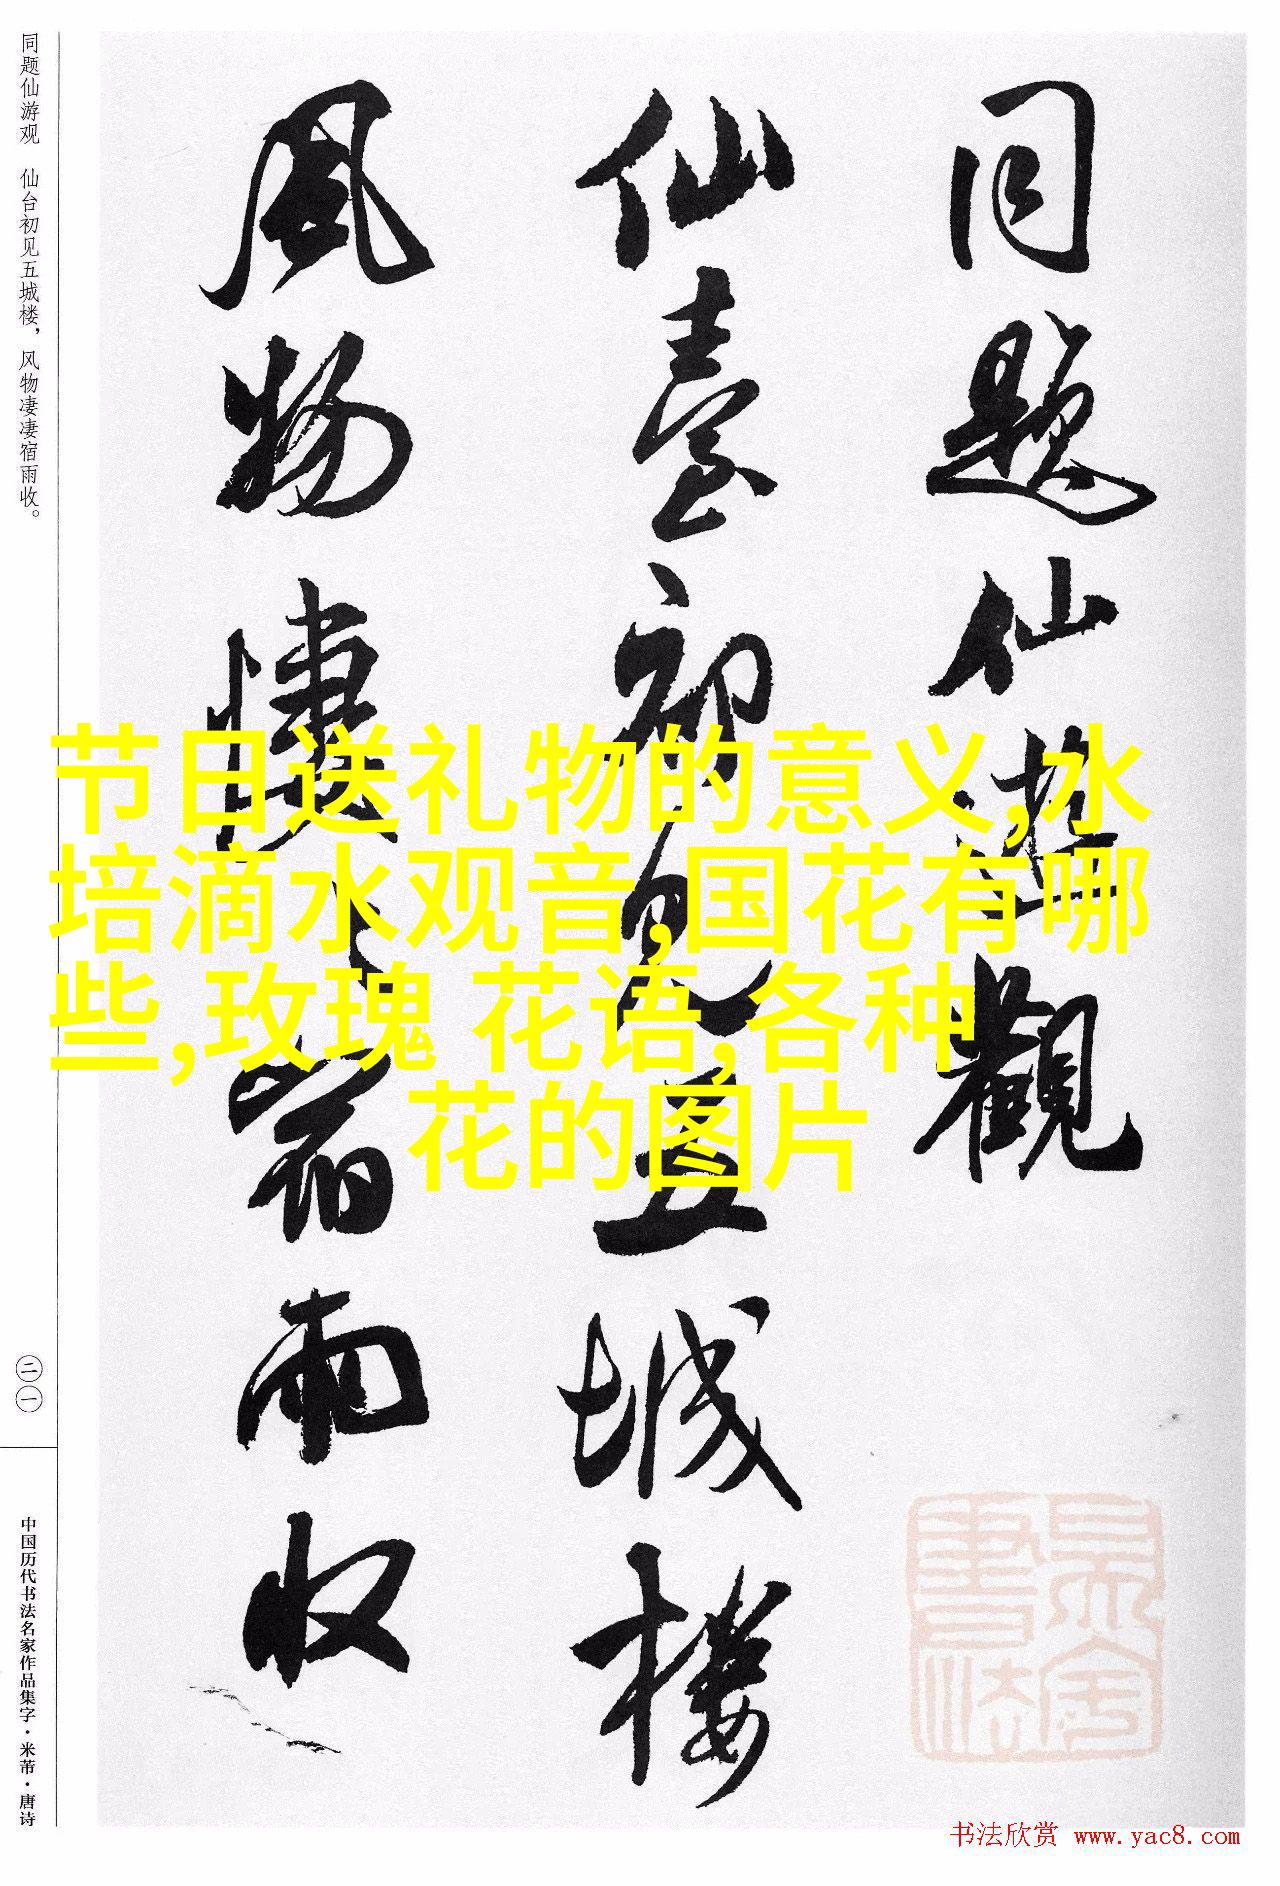 同题仙游观 仙台初见五城楼，风物凄凄宿雨收。
二一
中国历代书法名家作品集字·米芾·唐诗
同題仙遊觀
仙臺初見五城樓
風物悽〻宿雨收
节日送礼物的意义,水
培滴水观音,国花有哪
些,玫瑰 花语,各种
花的图片
书法欣赏 www.yac8.com